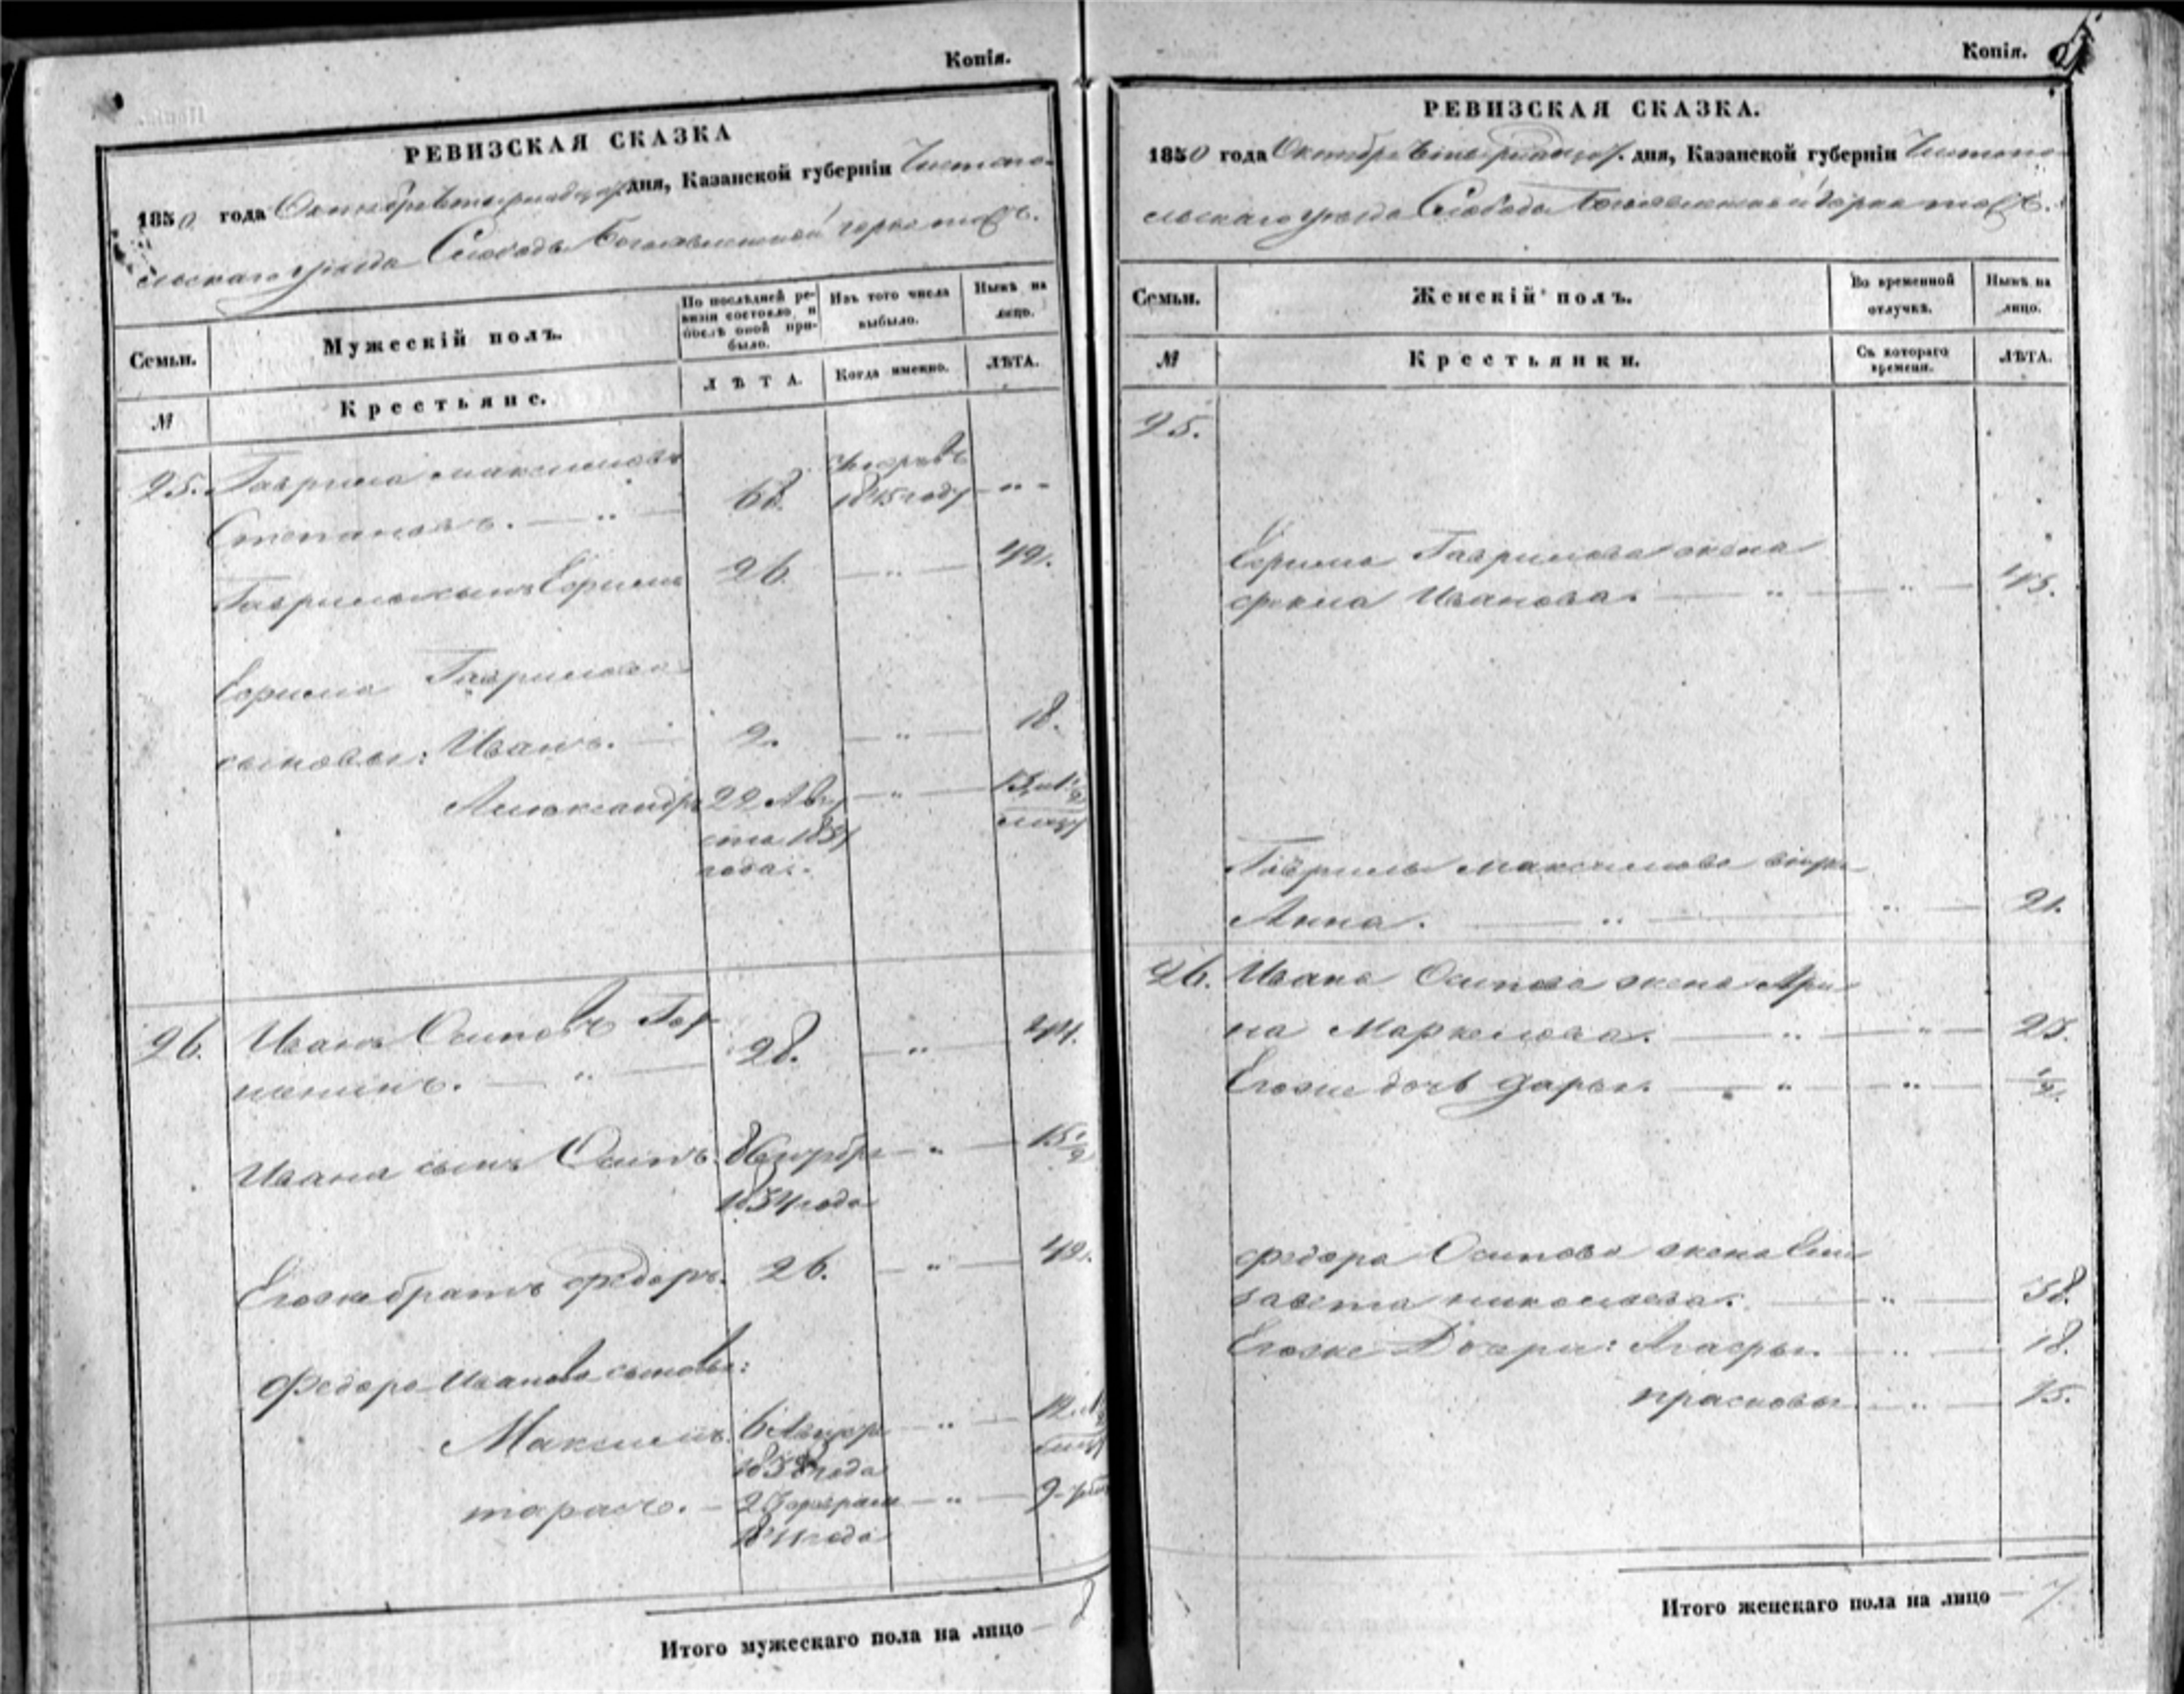 Копія.
РЕВИЗСКАЯ СКАЗКА
1850 года Октября дня, Казанской губерніи Чистопо-
льскаго уѣзда Слободы Богоявленской горки тожъ.
Семьи.
Мужескій полъ.
По послѣдней ре-
визіи состояло, и
послѣ оной при-
было.
Изъ того числа
выбыло.
Нынѣ на
лицо.
№
Крестьяне.
ЛѢТА.
Когда именно.
ЛѢТА.
25. Гаврила Максимовъ
Степановъ. 68.
1845 году
Гаврилы сынъ Ефимъ 26. 42.
Ефима Гаврилова
сыновья: Иванъ. 2. 18.
Александръ 22 Авгу
ста 1837
года.
26. Иванъ Осиповъ
28. 44.
Ивана сынъ Осипъ.
1834 года
15 1/2
Его же братъ Федоръ. 26. 42.
Федора Иванова сыновья:
Максимъ. 6
1838 года
тарасъ. 2 февраля 9
1841 года
Итого мужескаго пола на лицо
Копія.
РЕВИЗСКАЯ СКАЗКА.
1850 года Октября дня, Казанской губерніи Чистопо
льскаго уѣзда Слободы Богоявленской горки тожъ.
Семьи.
Женскій полъ.
Во временной
отлучкѣ.
Нынѣ на
лицо.
№
Крестьянки.
Съ котораго
времени.
ЛѢТА.
25.
Ефима Гаврилова жена
Ивановна. 45.
Гаврилы Максимова
Анна. 21.
26. Ивана Осипова жена Ари
на Маркелова. 25.
Его же дочь Дарья.
Федора Осипова жена Ели
завета николаева. 38.
Его же Дочери: Агафья. 18.
прасковья 15.
Итого женскаго пола на лицо 7